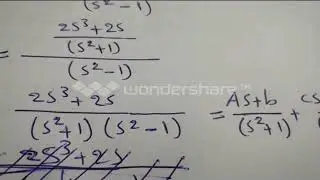 (s²-1)
= 2s³+2s
(s²+1)
(s²-1)
wondershare
2s³+2s
(s²+1) (s²-1)
= As+b
(s²+1)
+ cs
2s³+2s